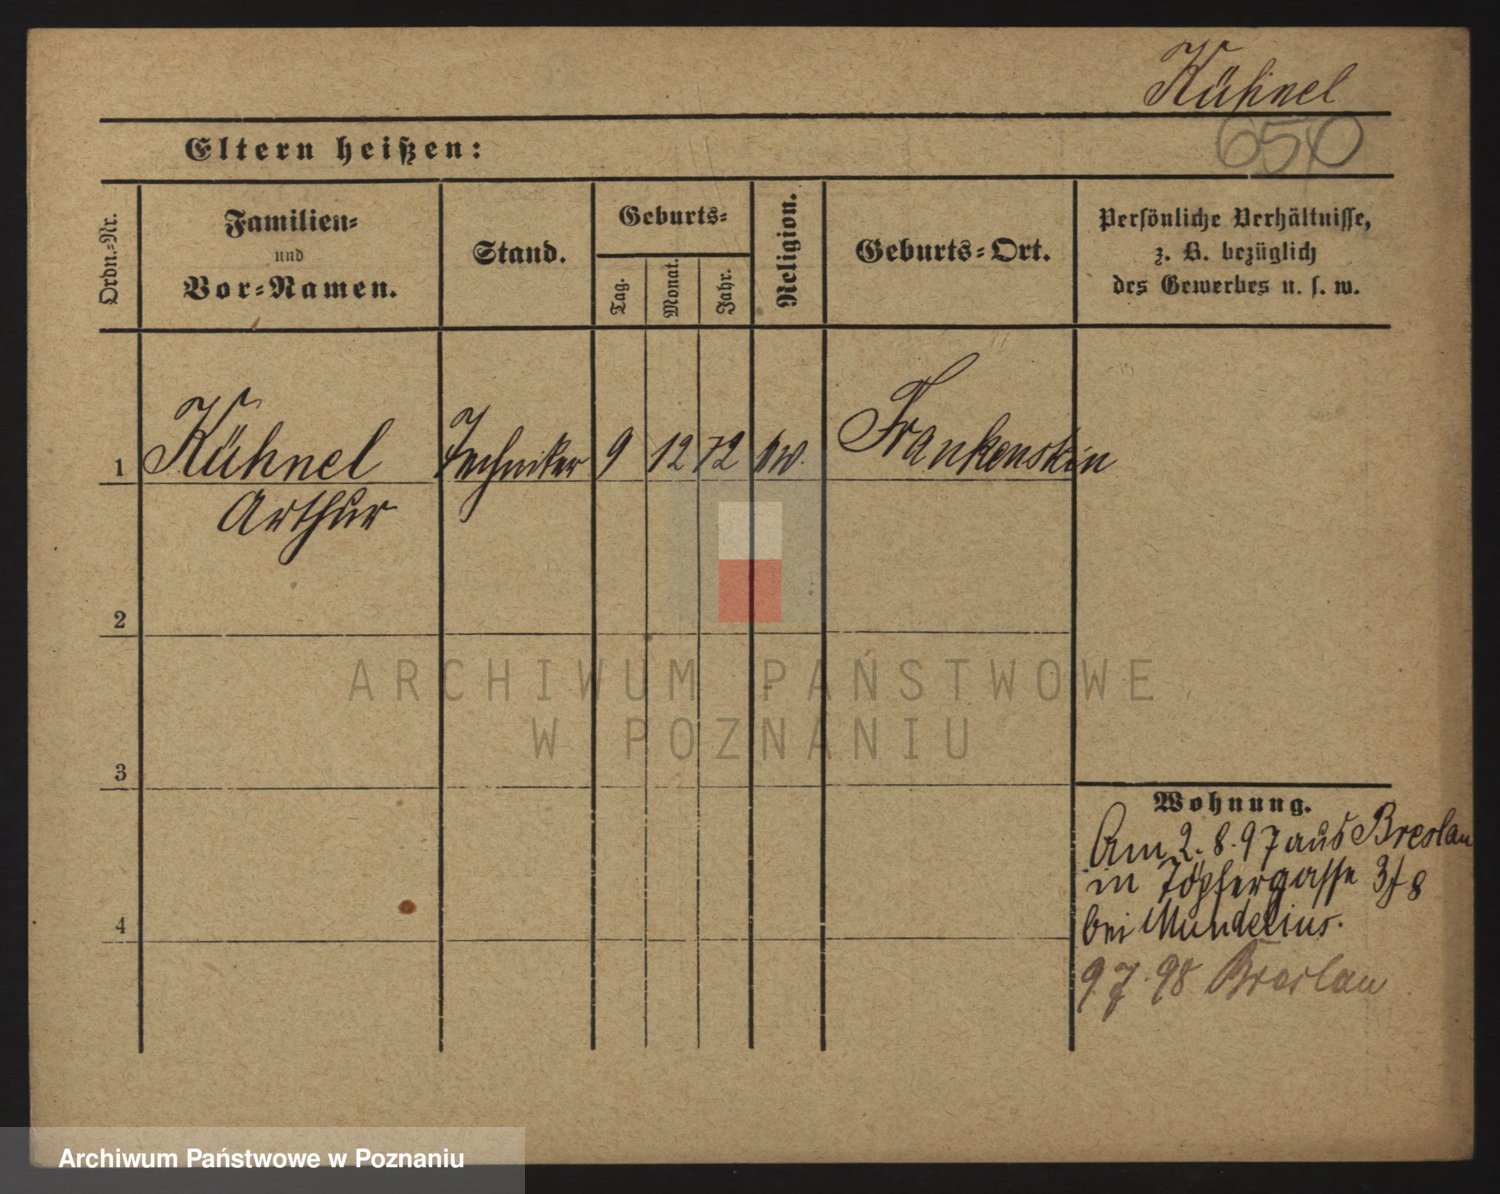 Kühnel
650
Eltern heißen:
Ordn.-Nr.
Familien-
und
Vor-Namen.
Stand.
Geburts-
Tag.
Monat.
Jahr.
Religion.
Geburts-Ort.
Persönliche Verhältnisse,
z. B. bezüglich
des Gewerbes u. s. w.
1 Kühnel Techniker 9 12 72 ev. Frankenstein
Arthur
2
3
4
Wohnung.
Am 2.8.97 aus Breslau
in Töpfergasse 3 / 8
bei Mundelius.
9.7.98 Breslau
ARCHIWUM PAŃSTWOWE
W POZNANIU
Archiwum Państwowe w Poznaniu